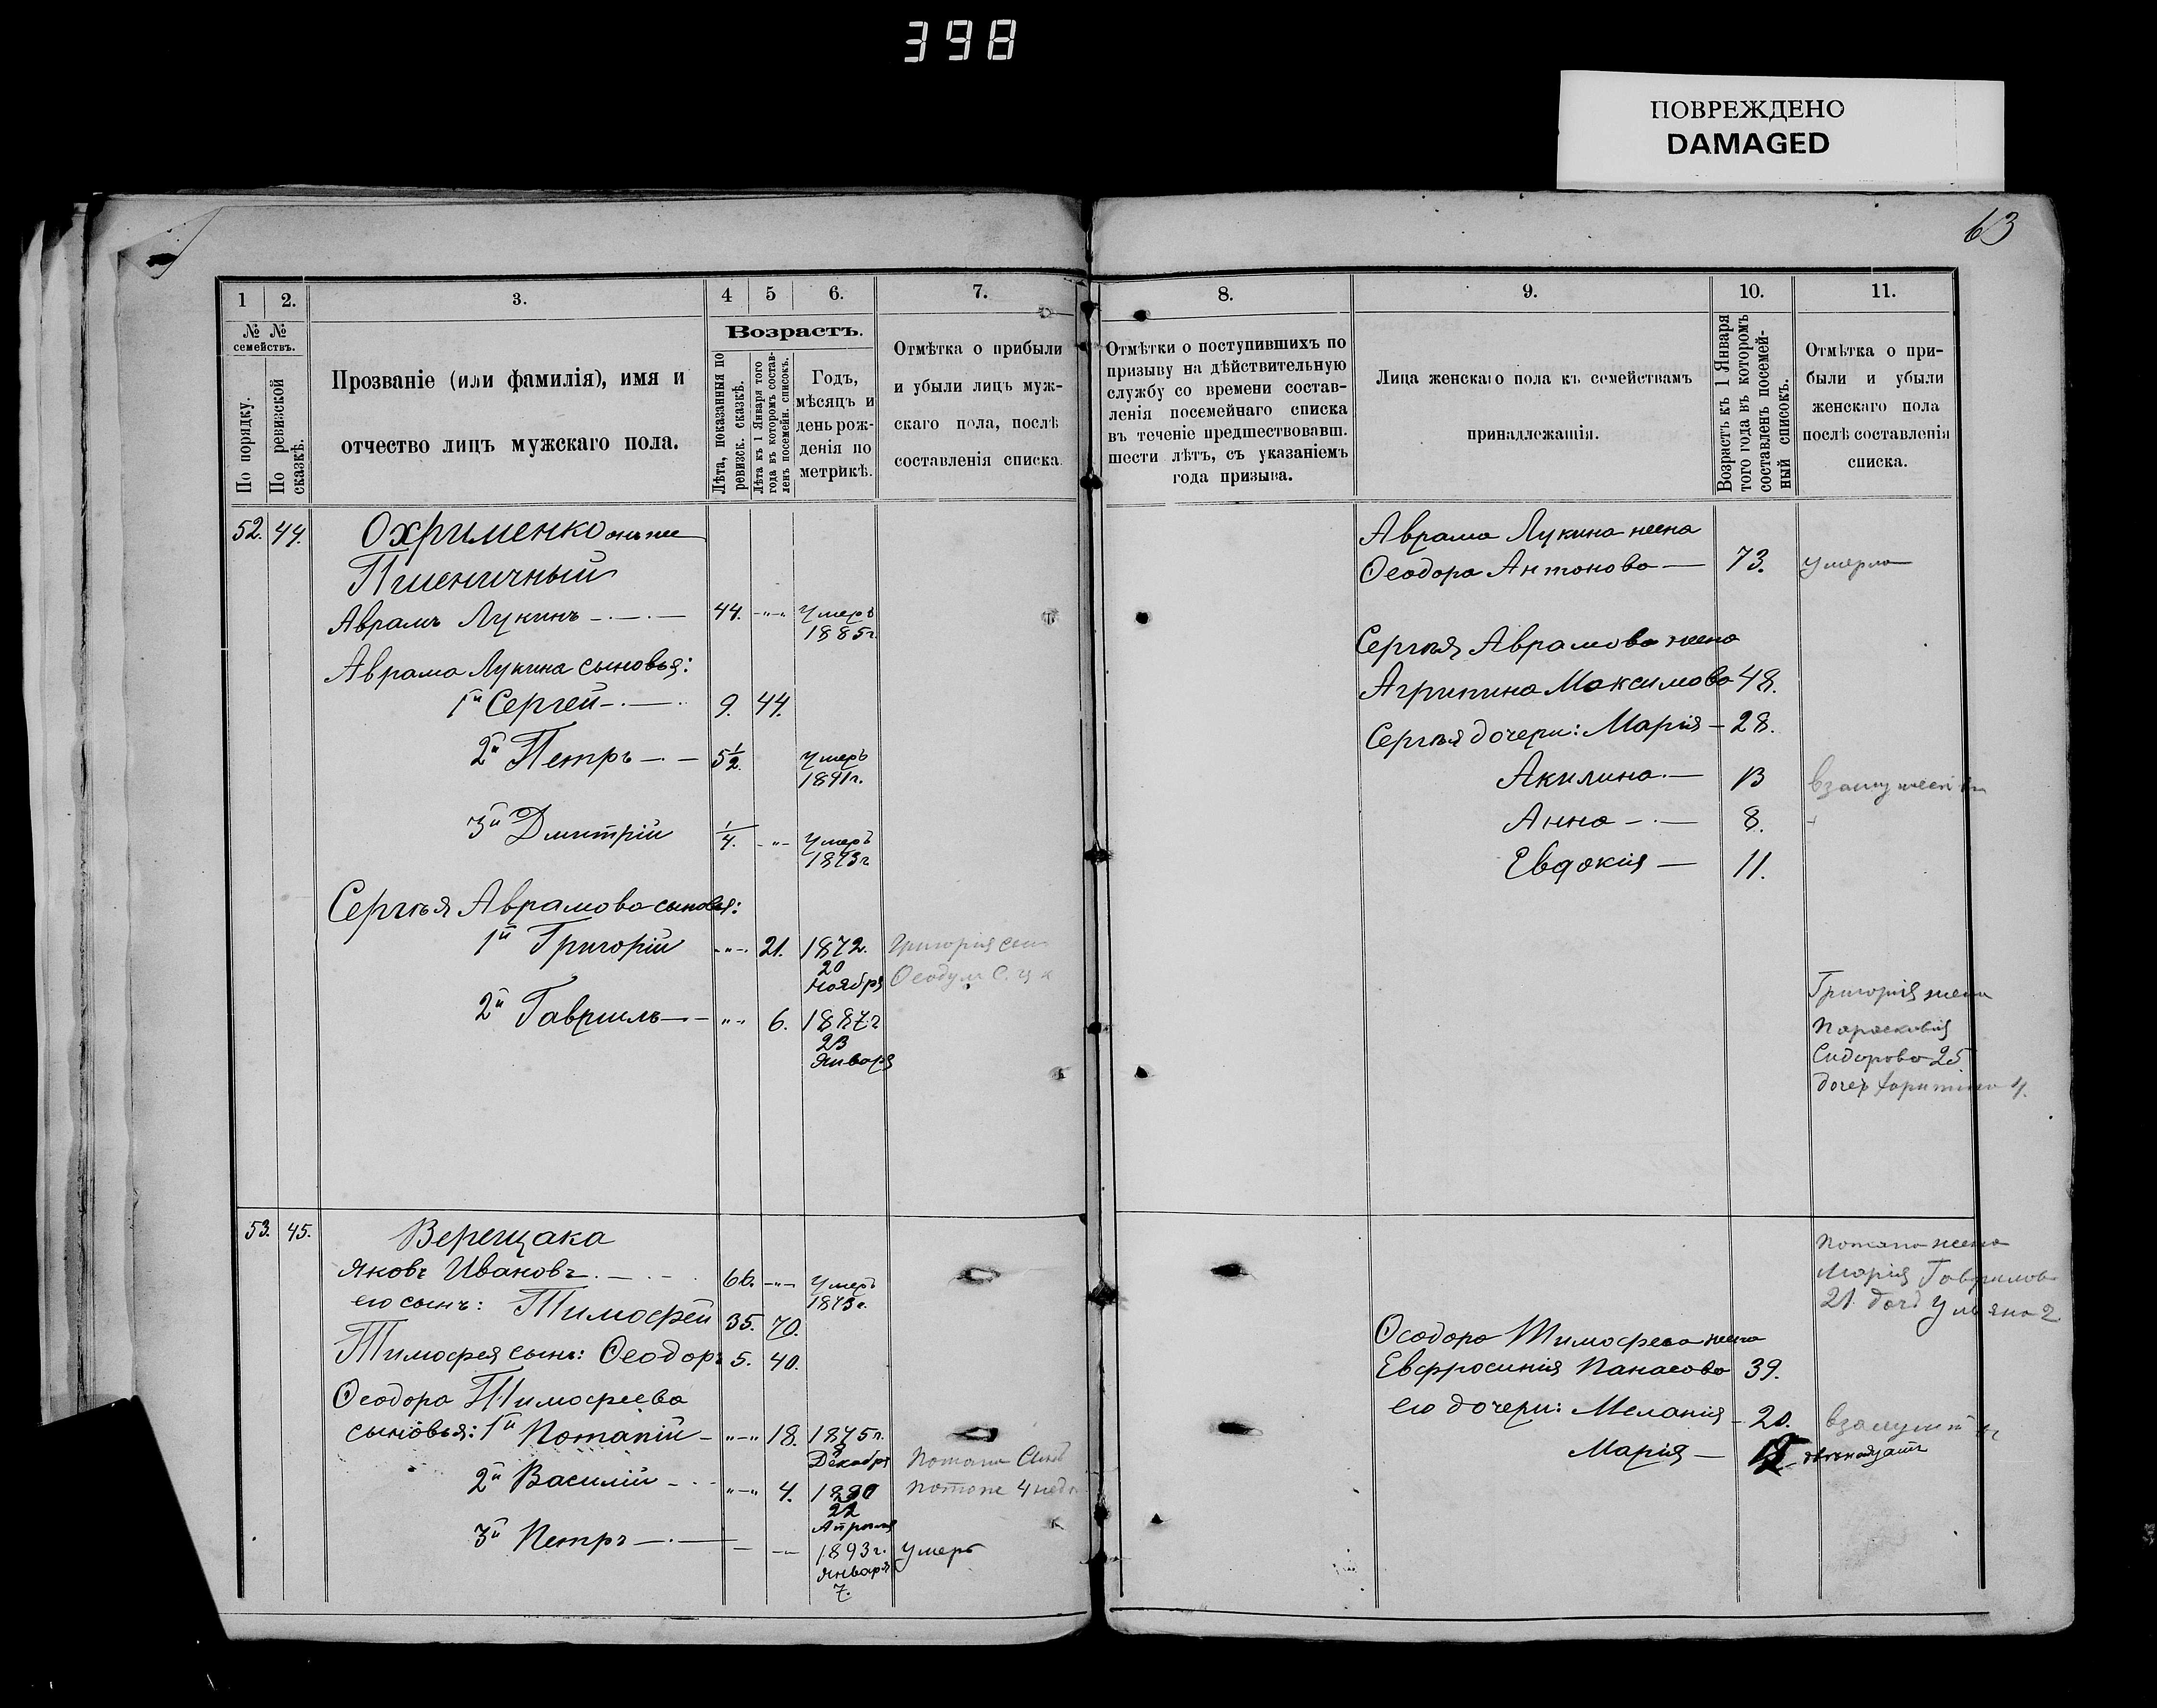 398
ПОВРЕЖДЕНО
DAMAGED
63
1 2. 3. 4 5 6. 7.
№ № семействъ.
По порядку.
По ревизской сказкѣ.
Прозваніе (или фамилія), имя и
отчество лицъ мужскаго пола.
Возрастъ.
Лѣта, показанныя по ревизск. сказкѣ.
Лѣта къ 1 Января того года въ которомъ составленъ посемейн. списокъ.
Годъ,
мѣсяцъ и
день рож-
денія по
метрикѣ.
Отмѣтка о прибыли
и убыли лицъ муж-
скаго пола, послѣ
составленія списка.
52. 44. Охрименко онъ же
Пшеничный
Аврамъ Лукинъ 44. Умеръ
1885г.
Аврама Лукина сыновья:
1й Сергей 9. 44.
2й Петръ 5½ Умеръ
1891г.
3й Дмитрій ¼. Умеръ
1873г
Сергѣя Аврамова сыновья:
1й Григорій 21. 1872. Григорія сын
20
Ноября Ѳеодум
2й Гавриилъ 6. 1887г
23
Января
53. 45. Верещака
Яковъ Ивановъ 66. Умеръ
1873г.
его сынъ: Тимофей 35. 70.
Тимофея сынъ: Ѳеодоръ 5. 40.
Ѳеодора Тимофеева
сыновья: 1й Потапій 18. 1875г.
Декабря Потапа Сынъ
2й Василій 4. 1890 Потапе 4 нед
22
Апрѣля
3й Петръ 1893г. Умеръ
Января
7.
8. 9. 10. 11.
Отмѣтки о поступившихъ по
призыву на дѣйствительную
службу со времени состав-
ленія посемейнаго списка
въ теченіе предшествовавш.
шести лѣтъ, съ указаніемъ
года призыва.
Лица женскаго пола къ семействамъ
принадлежащія.
Возрастъ къ 1 Января
того года въ которомъ
составленъ посемей-
ный списокъ.
Отмѣтка о при-
были и убыли
женскаго пола
послѣ составленія
списка.
Аврама Лукина жена
Ѳеодора Антонова 73. умерла
Сергѣя Аврамова жена
Агрипина Максимова 48.
Сергѣя дочери: Марія 28.
Акилина 13 взамужест
Анна 8.
Евдокія 11.
Григорія жена
Парасковія
Сидорова 25
дочерь 4.
Потапа жена
Марія Гаврилова
21. Ульяна 2
Ѳеодора Тимофеева жена
Евфросинія Панасова 39.
его дочери: Меланія 20. взамуж
Марія 12 двенадцать